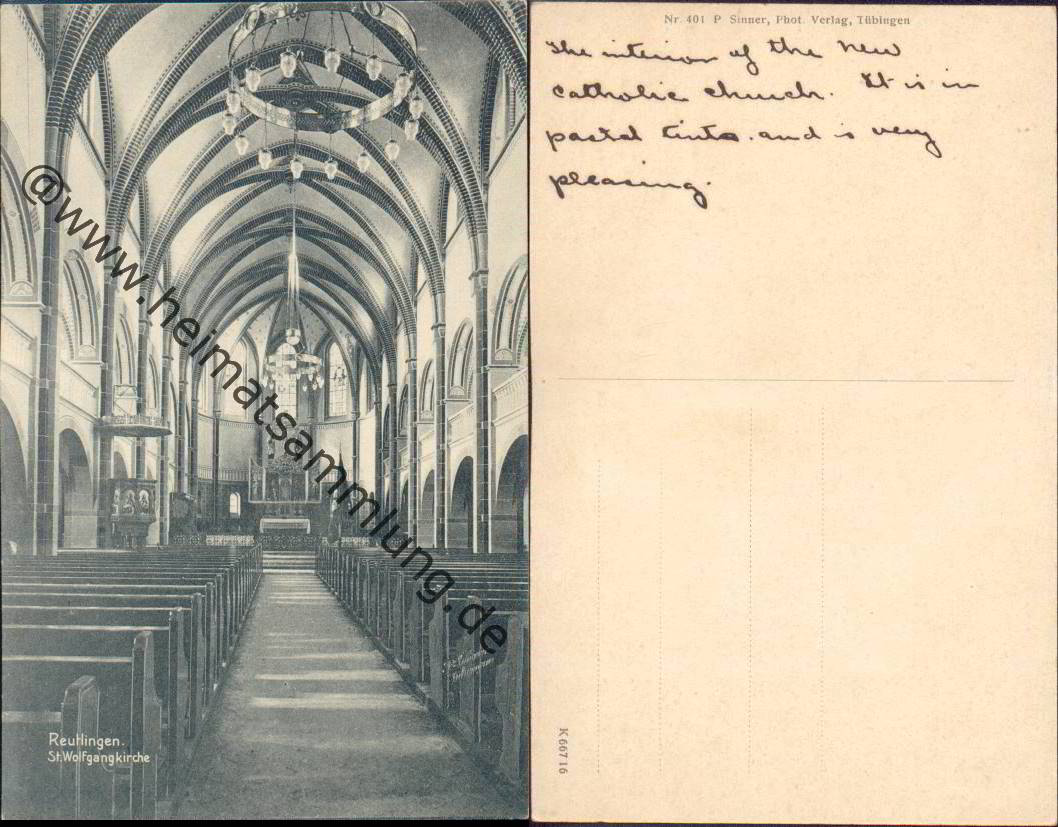 @www.heimatsammlung.de
Reutlingen.
St.Wolfgangkirche
Nr. 401 P Sinner, Phot. Verlag, Tübingen
The interior of the new
catholic church. It is in
pastel tints. and is very
pleasing.
K 66716